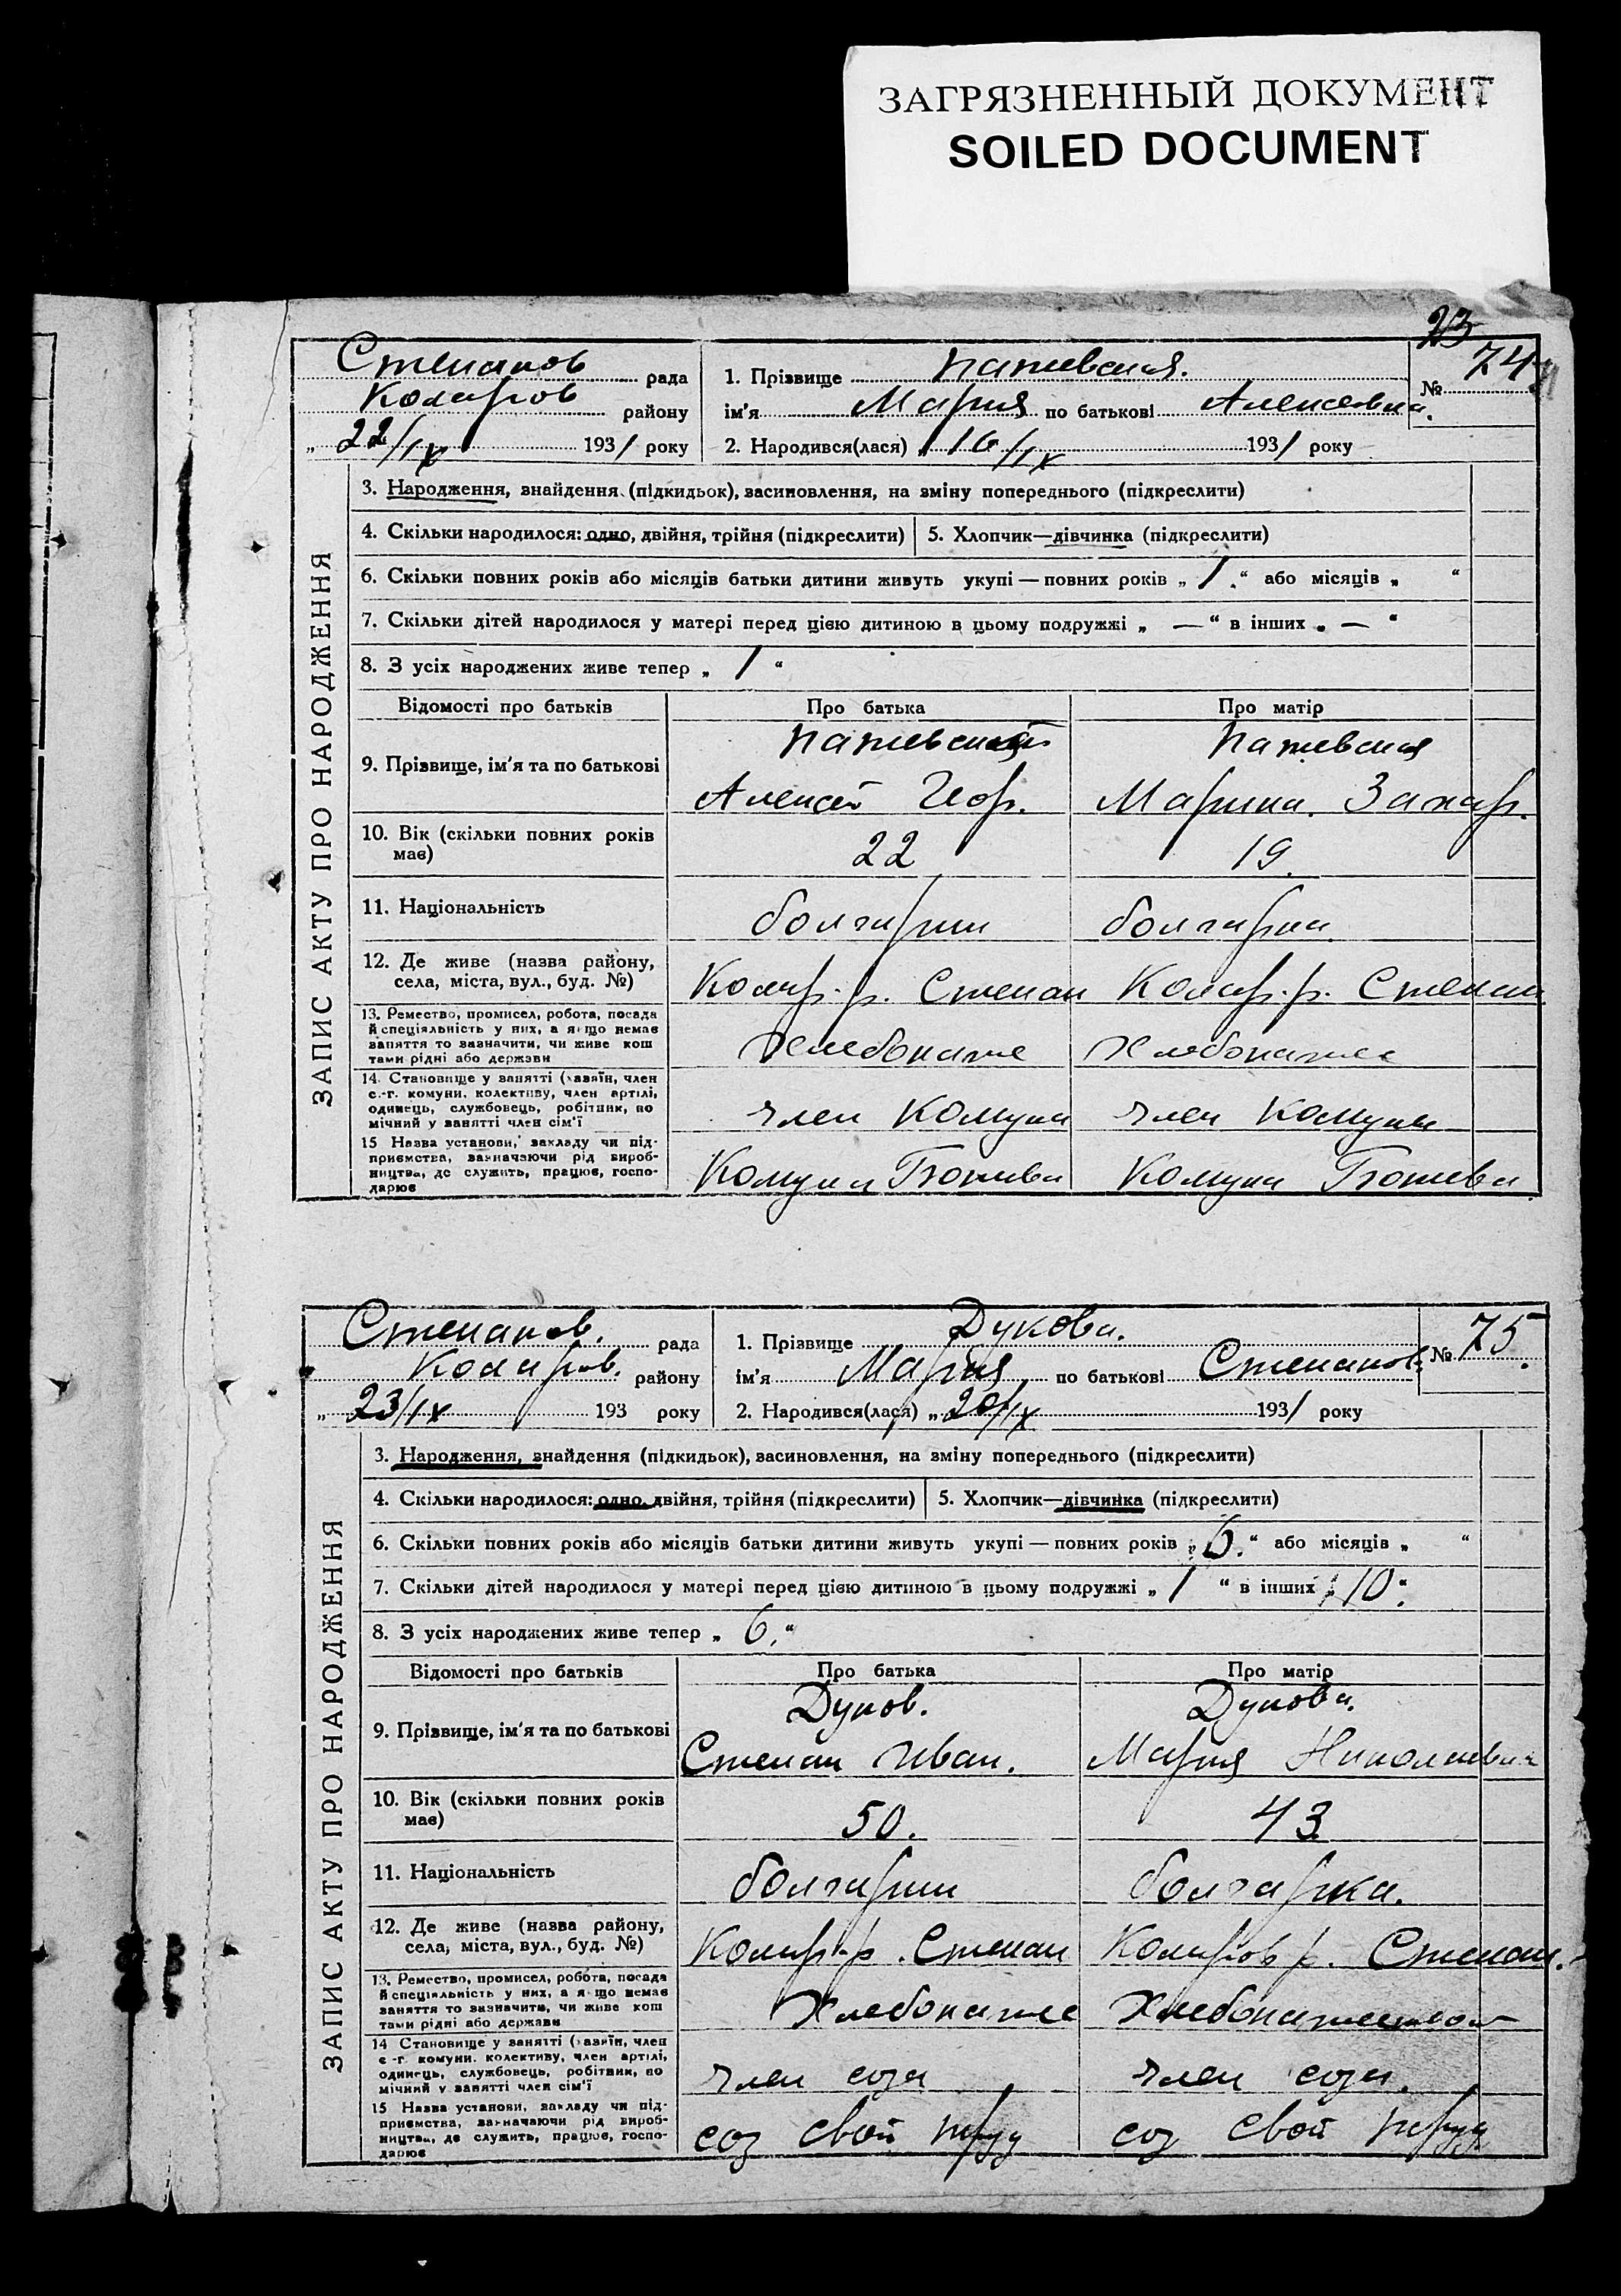 ЗАГРЯЗНЕННЫЙ ДОКУМЕНТ
SOILED DOCUMENT
23
Степанов рада
Коларов району
„ 22/IX 1931 року
1. Прізвище
ім'я Мария по батькові Алексеевна.
2. Народився(лася) „ 16/IX 1931 року
№ 74
ЗАПИС АКТУ ПРО НАРОДЖЕННЯ
3. Народження, знайдення (підкидьок), засиновлення, на зміну попереднього (підкреслити)
4. Скільки народилося: одно, двійня, трійня (підкреслити)
5. Хлопчик—дівчинка (підкреслити)
6. Скільки повних років або місяців батьки дитини живуть укупі — повних років „ 1 .“ або місяців „ “
7. Скільки дітей народилося у матері перед цією дитиною в цьому подружжі „ — “ в інших „ — “
8. З усіх народжених живе тепер „ 1 “
Відомості про батьків Про батька Про матір
9. Прізвище, ім'я та по батькові
Алексей Геор. Марина. Захар.
10. Вік (скільки повних років має) 22 19.
11. Національність болгарин болгарка
12. Де живе (назва району, села, міста, вул., буд. №) Колар. р. Степан Колар. р. Степан
13. Ремество, промисел, робота, посада
й спеціяльність у них, а якщо немає
заняття то зазначити, чи живе кош
тами рідні або держави
Хлебопаше Хлебопаше
14. Становище у занятті (хазяїн, член
с.-г. комуни, колективу, член артілі,
одинець, службовець, робітник, по
мічний у занятті член сім'ї
член Комуни член Комуны
15 Назва установи, закладу чи під-
приємства, зазначаючи рід вироб-
ництва, де служить, працює, госпо-
дарює
Комуна Ботева Комуна Ботева
Степанов. рада
Коларов. району
„ 23/IX 193 року
1. Прізвище Дукова.
ім'я Мария по батькові Степанов.
2. Народився(лася) „ 20/IX 1931 року
№ 75.
ЗАПИС АКТУ ПРО НАРОДЖЕННЯ
3. Народження, знайдення (підкидьок), засиновлення, на зміну попереднього (підкреслити)
4. Скільки народилося: одно, двійня, трійня (підкреслити)
5. Хлопчик—дівчинка (підкреслити)
6. Скільки повних років або місяців батьки дитини живуть укупі — повних років „ 6. “ або місяців „ “
7. Скільки дітей народилося у матері перед цією дитиною в цьому подружжі „ 1 “ в інших „ 10 “
8. З усіх народжених живе тепер „ 6. “
Відомості про батьків Про батька Про матір
9. Прізвище, ім'я та по батькові Дуков. Дукова.
Степан Иван. Мария Николаевна
10. Вік (скільки повних років має) 50. 43
11. Національність болгарин болгарка.
12. Де живе (назва району, села, міста, вул., буд. №) Колар. р. Степан Коларов р. Степан.
13. Ремество, промисел, робота, посада
й спеціяльність у них, а якщо немає
заняття то зазначити, чи живе кош
тами рідні або держави
Хлебопаше Хлебопашеством
14 Становище у занятті (хазяїн, член
с-г. комуни, колективу, член артілі,
одинець, службовець, робітник, по
мічний у занятті член сім'ї
член соза член соза.
15 Назва установи, закладу чи під-
приємства, зазначаючи рід вироб-
ництва, де служить, працює, госпо-
дарює
соз Свой труд соз Свой труд